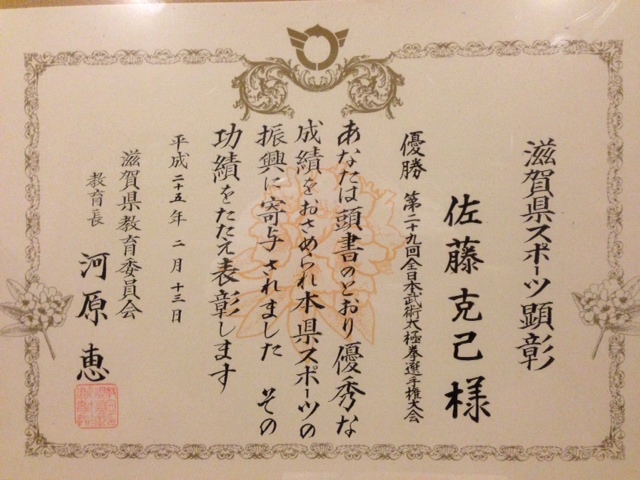 滋賀県スポーツ顕彰
佐藤克己様
優勝 第二十九回全日本武術太極拳選手権大会
あなたは頭書のとおり優秀な
成績をおさめられ本県スポーツの
振興に寄与されました その
功績をたたえ表彰します
平成二十五年二月十三日
滋賀県教育委員会
教育長 河原恵